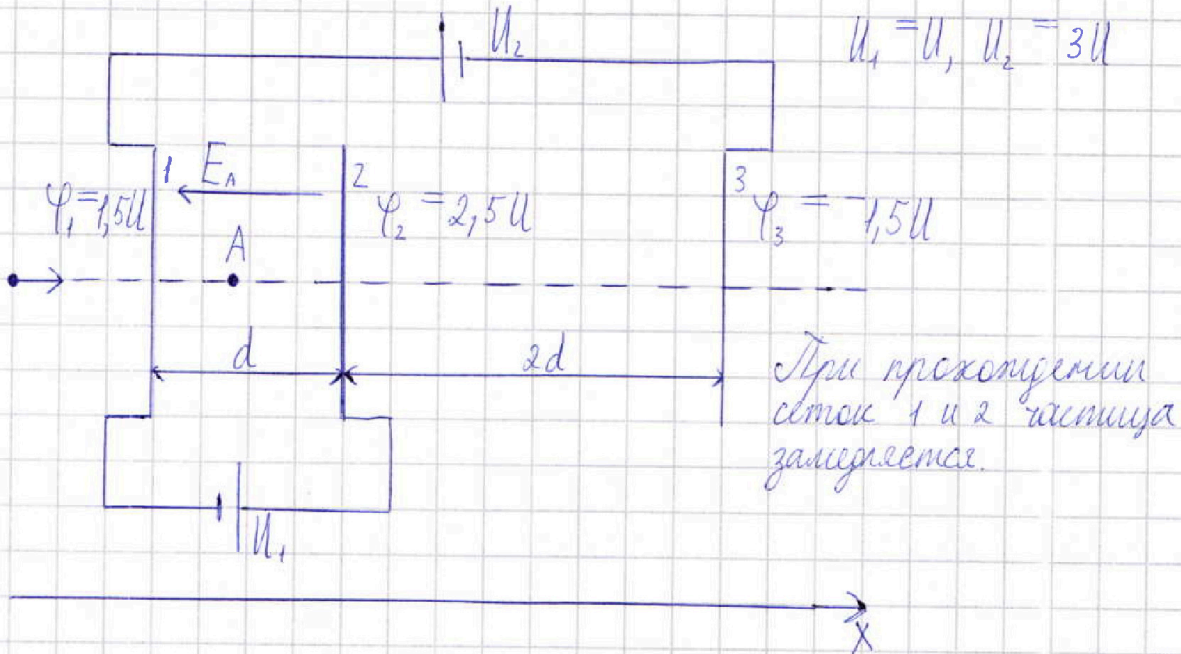 U₂
U₁ = U, U₂ = 3U
1
E_A
2
3
φ₁ = 1,5U
φ₂ = 2,5U
φ₃ = -1,5U
A
d
2d
При прохождении
сеток 1 и 2 частица
замедляется.
U₁
X